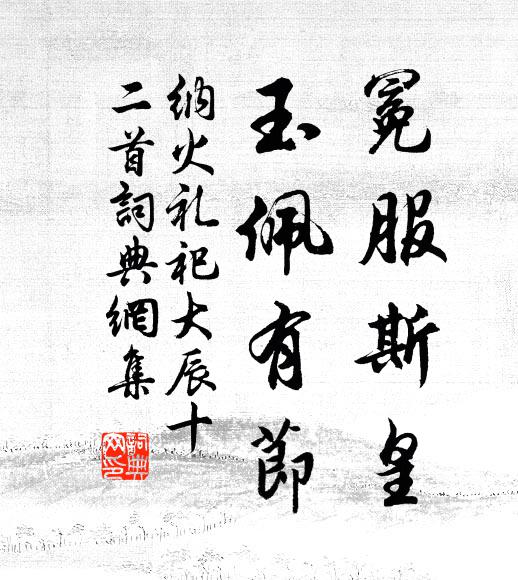 冕服斯皇
玉佩有節
納火礼祀大辰十
二首詞典網集
詞典
网印